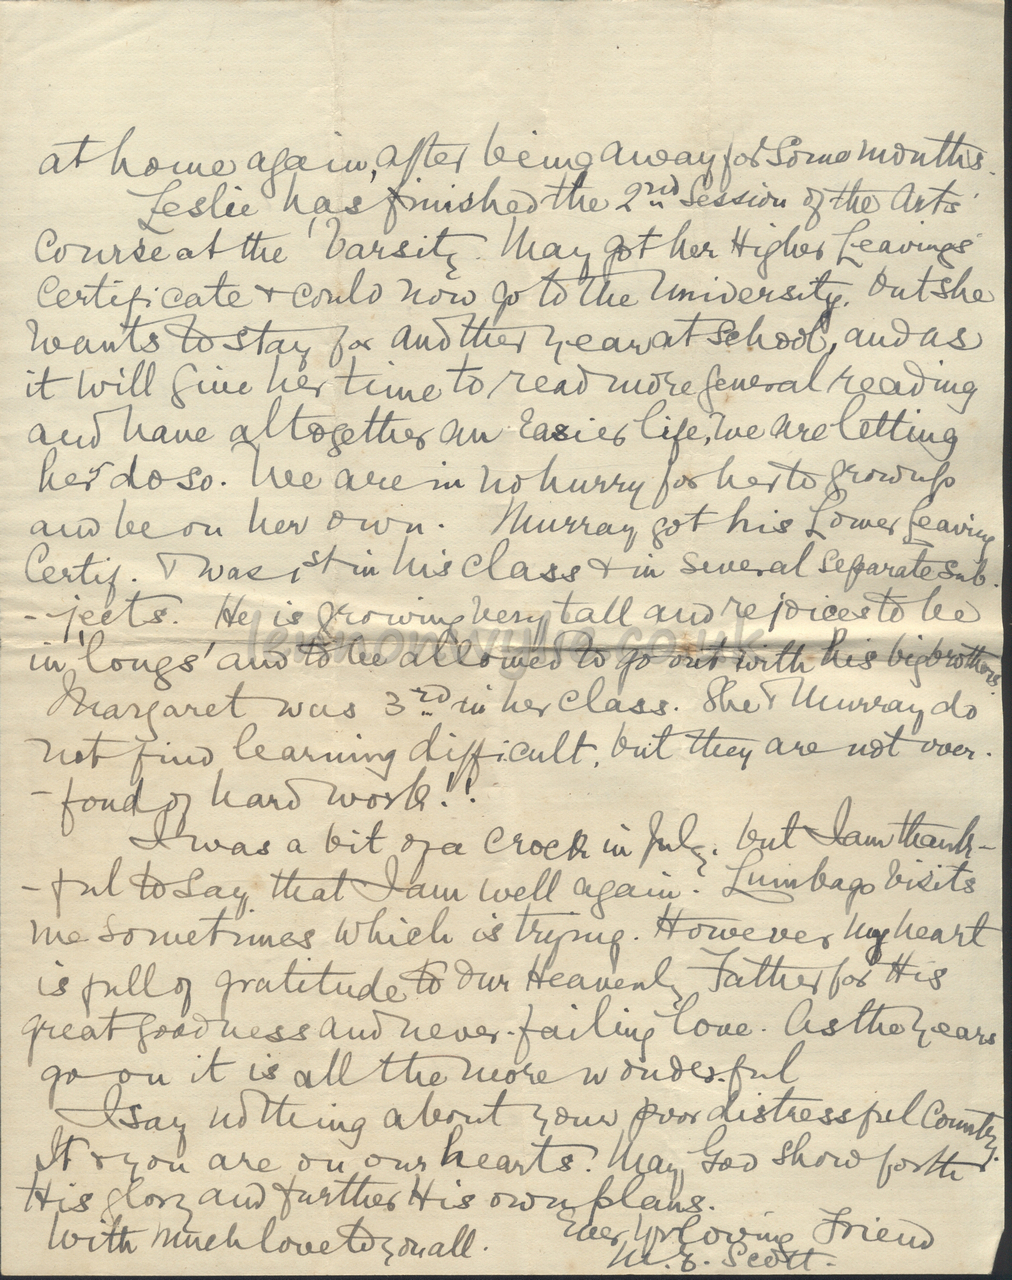 at home again, after being away for some months.
Leslie has finished the 2nd Session of the Arts'
Course at the 'Varsity. May got her Higher Leavings
Certificate & could now go to the University. But she
wants to stay for another year at school, and as
it will give her time to read more general reading
and have altogether an easier life, we are letting
her do so. We are in no hurry for her to grow up
and be on her own. Murray got his Lower Leaving
Certif. & was 1st in his class & in several separate sub-
-jects. He is growing very tall and rejoices to be
in 'longs' and to be allowed to go out with his big brothers.
Margaret was 3rd in her class. She & Murray do
not find learning difficult, but they are not over-
-fond of hard work!!
I was a bit of a crock in July. but I am thank-
-ful to say that I am well again. Lumbago visits
me sometimes which is trying. However my heart
is full of gratitude to our Heavenly Father for His
great goodness and never-failing love. As the years
go on it is all the more wonderful
I say nothing about your poor distressful Country.
It & you are on our hearts. May God show forth
His glory and further His own plans.
With much love to you all.
Ever yr loving Friend
M. E. Scott.
lennonwylie.co.uk